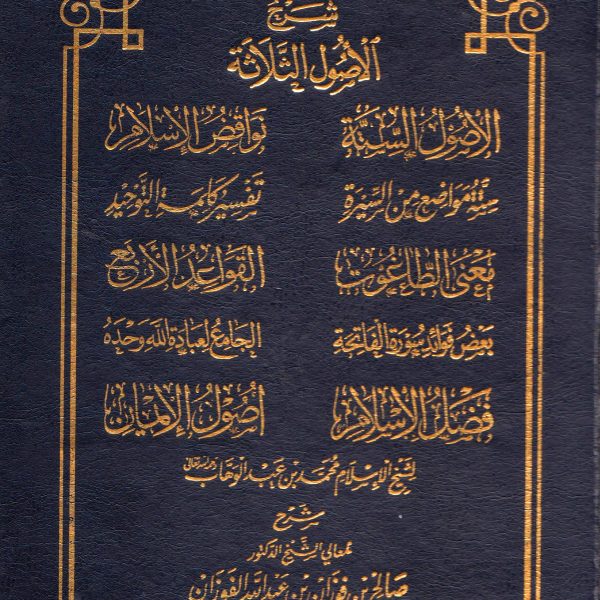 شرح
الأصول الثلاثة
الأصول الستة نواقض الإسلام
ستة مواضع من السيرة تفسير كلمة التوحيد
معنى الطاغوت القواعد الأربع
بعض فوائد سورة الفاتحة الجامع لعبادة الله وحده
فضل الإسلام أصول الإيمان
لشيخ الإسلام محمد بن عبد الوهاب رحمه الله تعالى
شرح
معالي الشيخ الدكتور
صالح بن فوزان بن عبد الله الفوزان